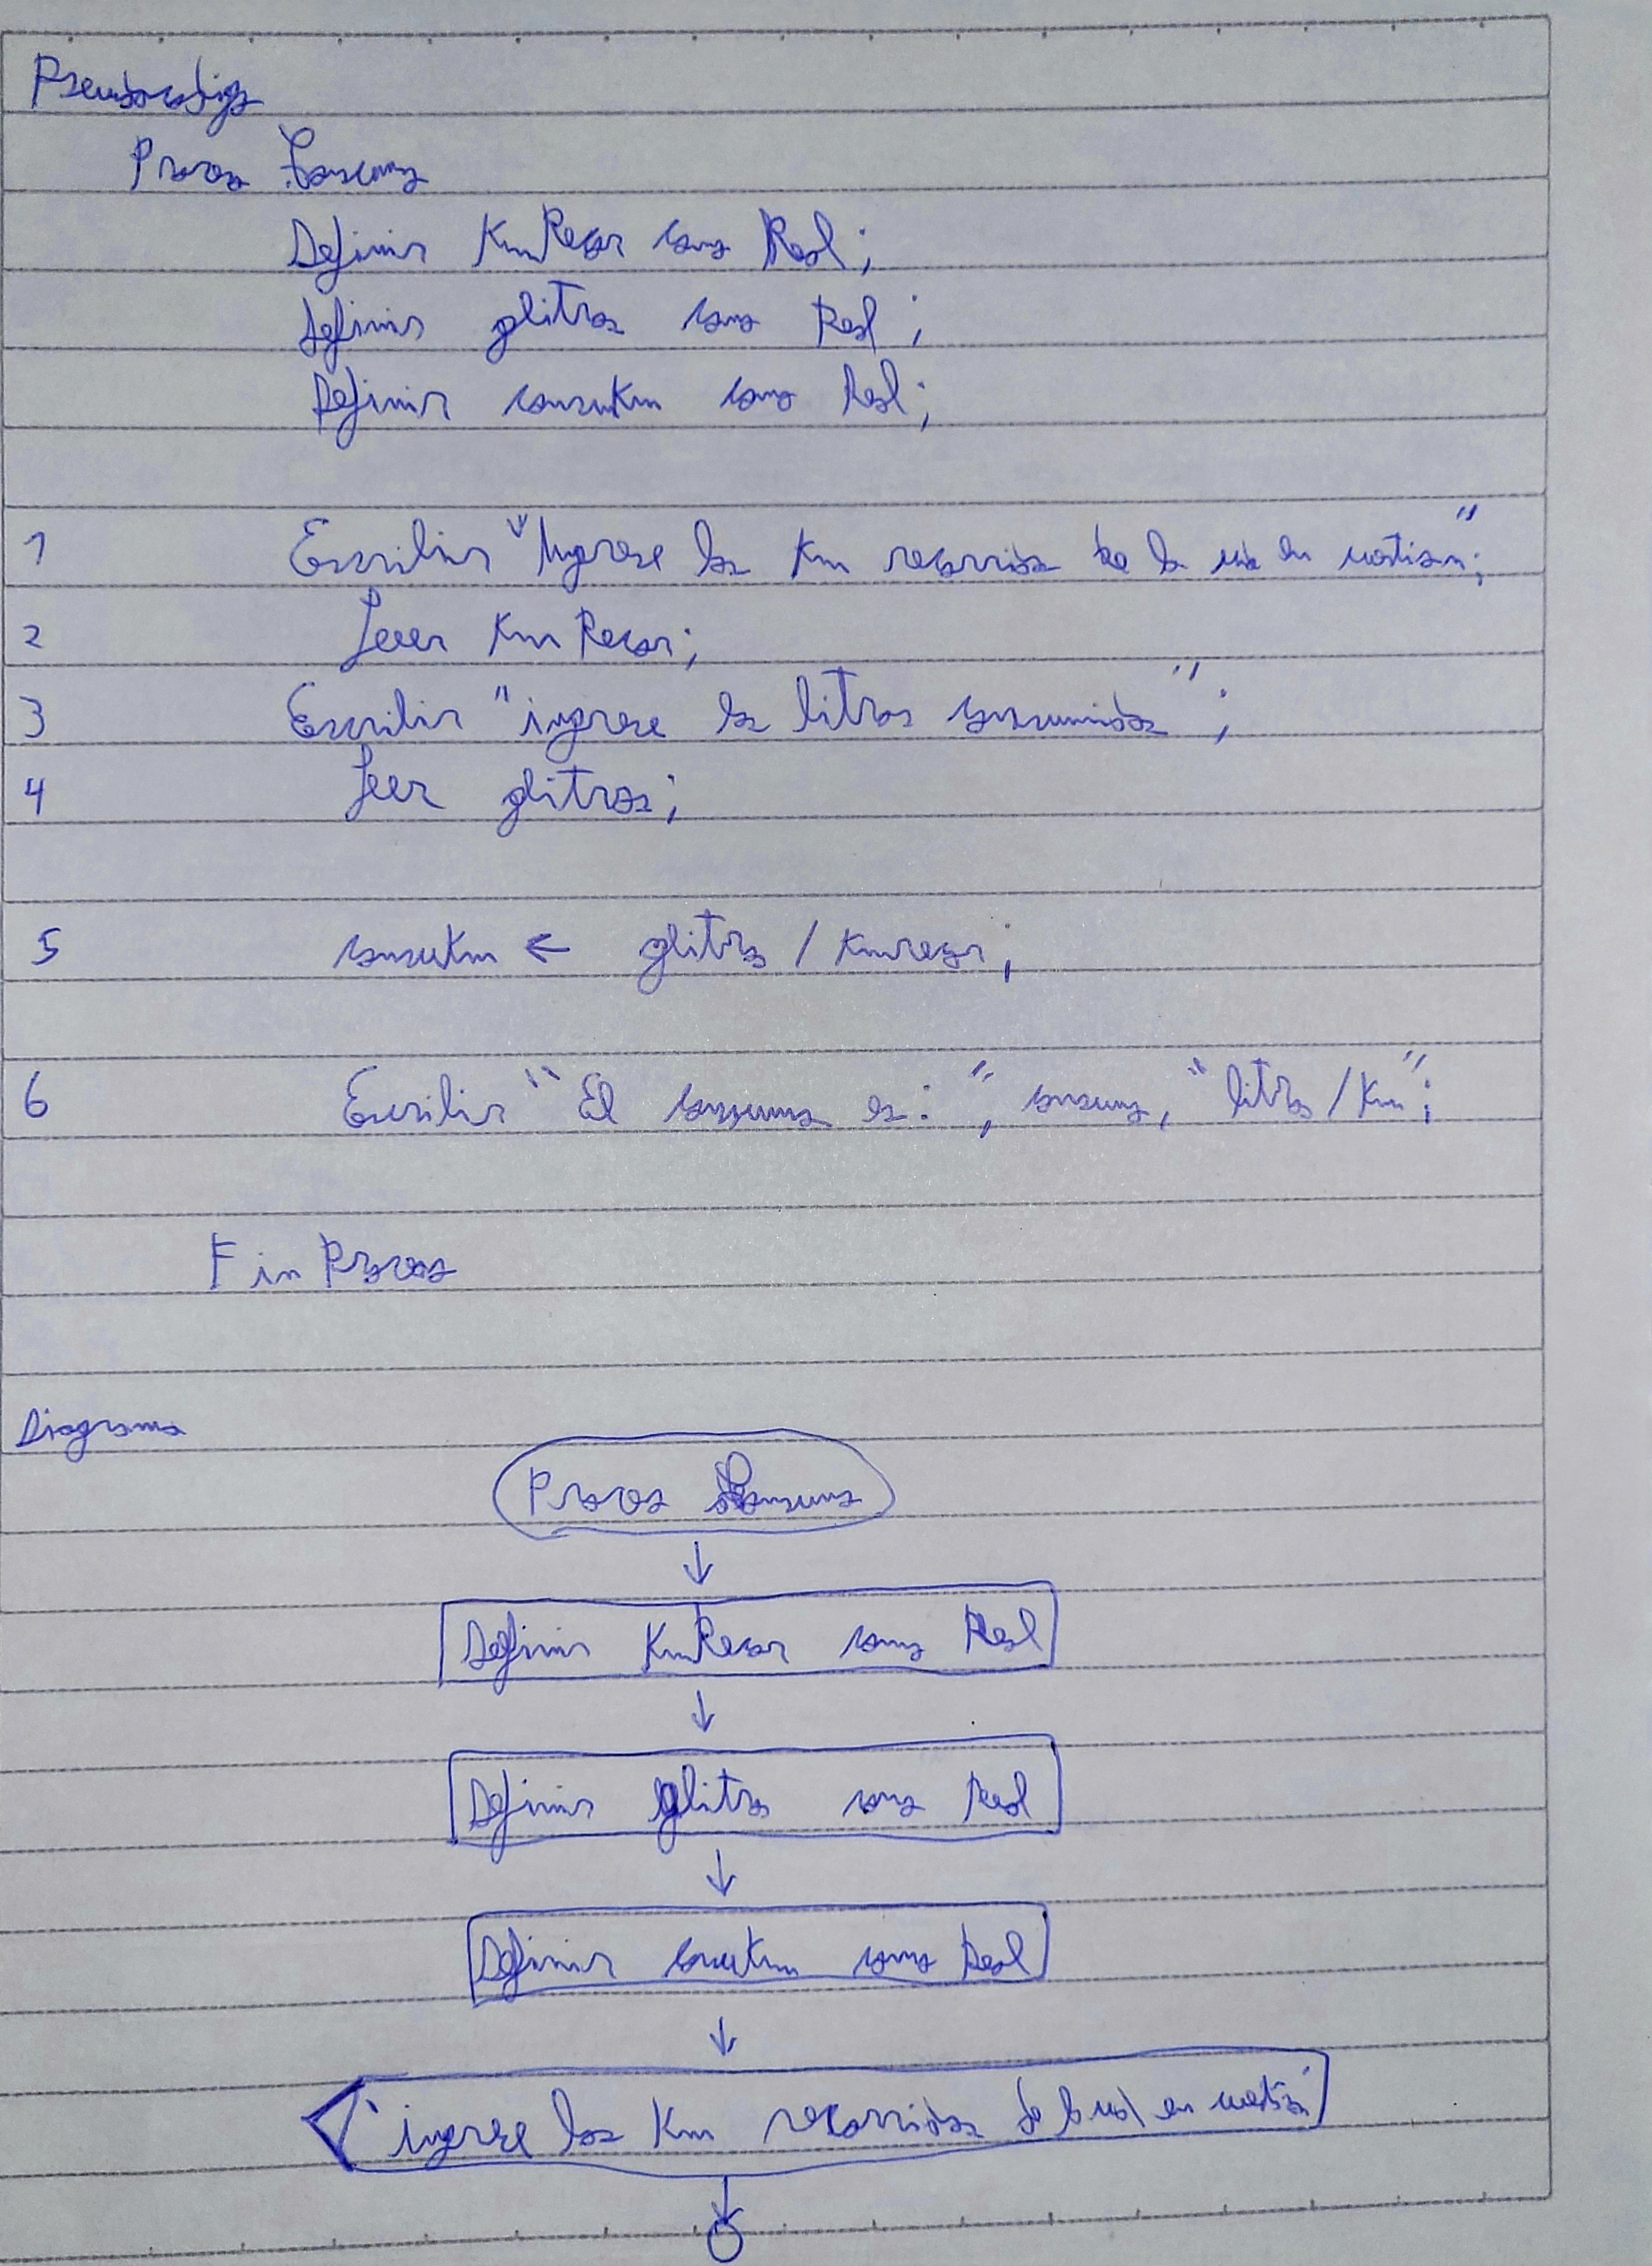 Pseudocodigo
Proceso Consumo
Definir KmRecor como Real;
Definir glitros como Real;
Definir consukm como Real;
1 Escribir "Ingrese los Km recorridos de la en cuestion";
2 Leer KmRecor;
3 Escribir "ingrese los litros consumidos";
4 Leer glitros;
5 consukm ← glitros / kmrecor;
6 Escribir "El consumo es: ", consumo, "litros/Km";
Fin Proceso
Diagrama
Proceso Consumo
Definir KmRecor como Real
Definir glitros como Real
Definir consukm como Real
'ingrese los Km recorridos de la en cuestion'